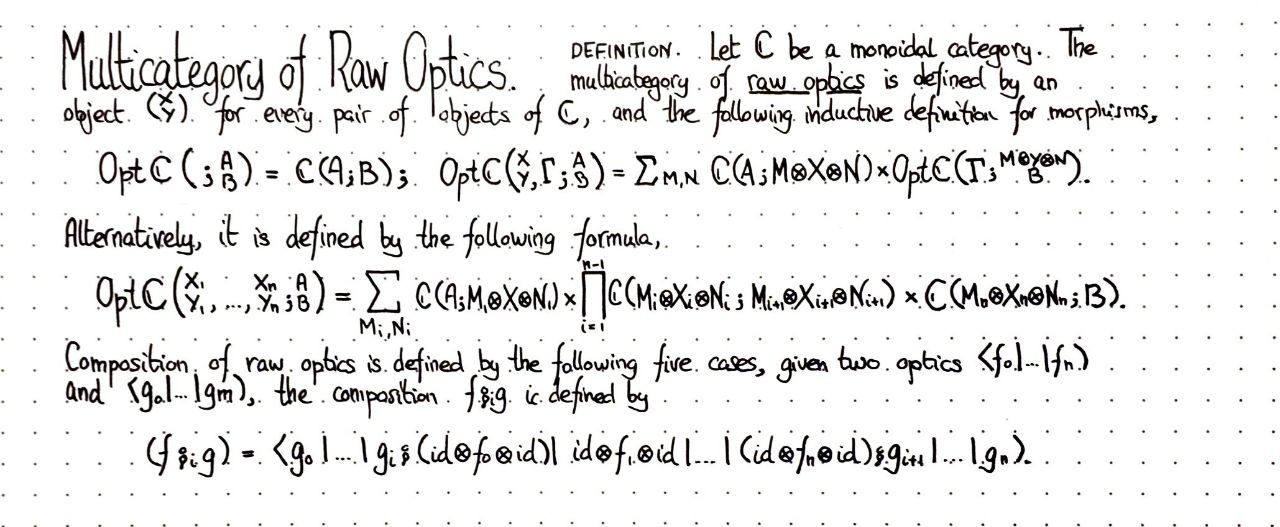 Multicategory of Raw Optics. DEFINITION. Let ℂ be a monoidal category. The
multicategory of raw optics is defined by an
object (X Y) for every pair of objects of ℂ, and the following inductive definition for morphisms,
Optℂ ( ; A B) = ℂ(A;B); Optℂ(X Y, Γ ; A B) = Σ M,N ℂ(A; M⊗X⊗N) × Optℂ(Γ; M⊗Y⊗N B).
Alternatively, it is defined by the following formula,
Optℂ(X₁ Y₁, ..., Xₙ Yₙ ; A B) = Σ Mᵢ,Nᵢ ℂ(A; M₁⊗X⊗N₁) × ∏ i=1 n-1 ℂ(Mᵢ⊗Xᵢ⊗Nᵢ ; Mᵢ₊₁⊗Xᵢ₊₁⊗Nᵢ₊₁) × ℂ(Mₙ⊗Xₙ⊗Nₙ ; B).
Composition of raw optics is defined by the following five cases, given two optics ⟨f₀|...|fₙ⟩
and ⟨g₀|...|gm⟩, the composition f⨟ᵢg is defined by
(f⨟ᵢg) = ⟨g₀|...|gᵢ⨟(id⊗f₀⊗id)| id⊗f₁⊗id|...|(id⊗fₙ⊗id)⨟gᵢ₊₁|...|gₙ⟩.